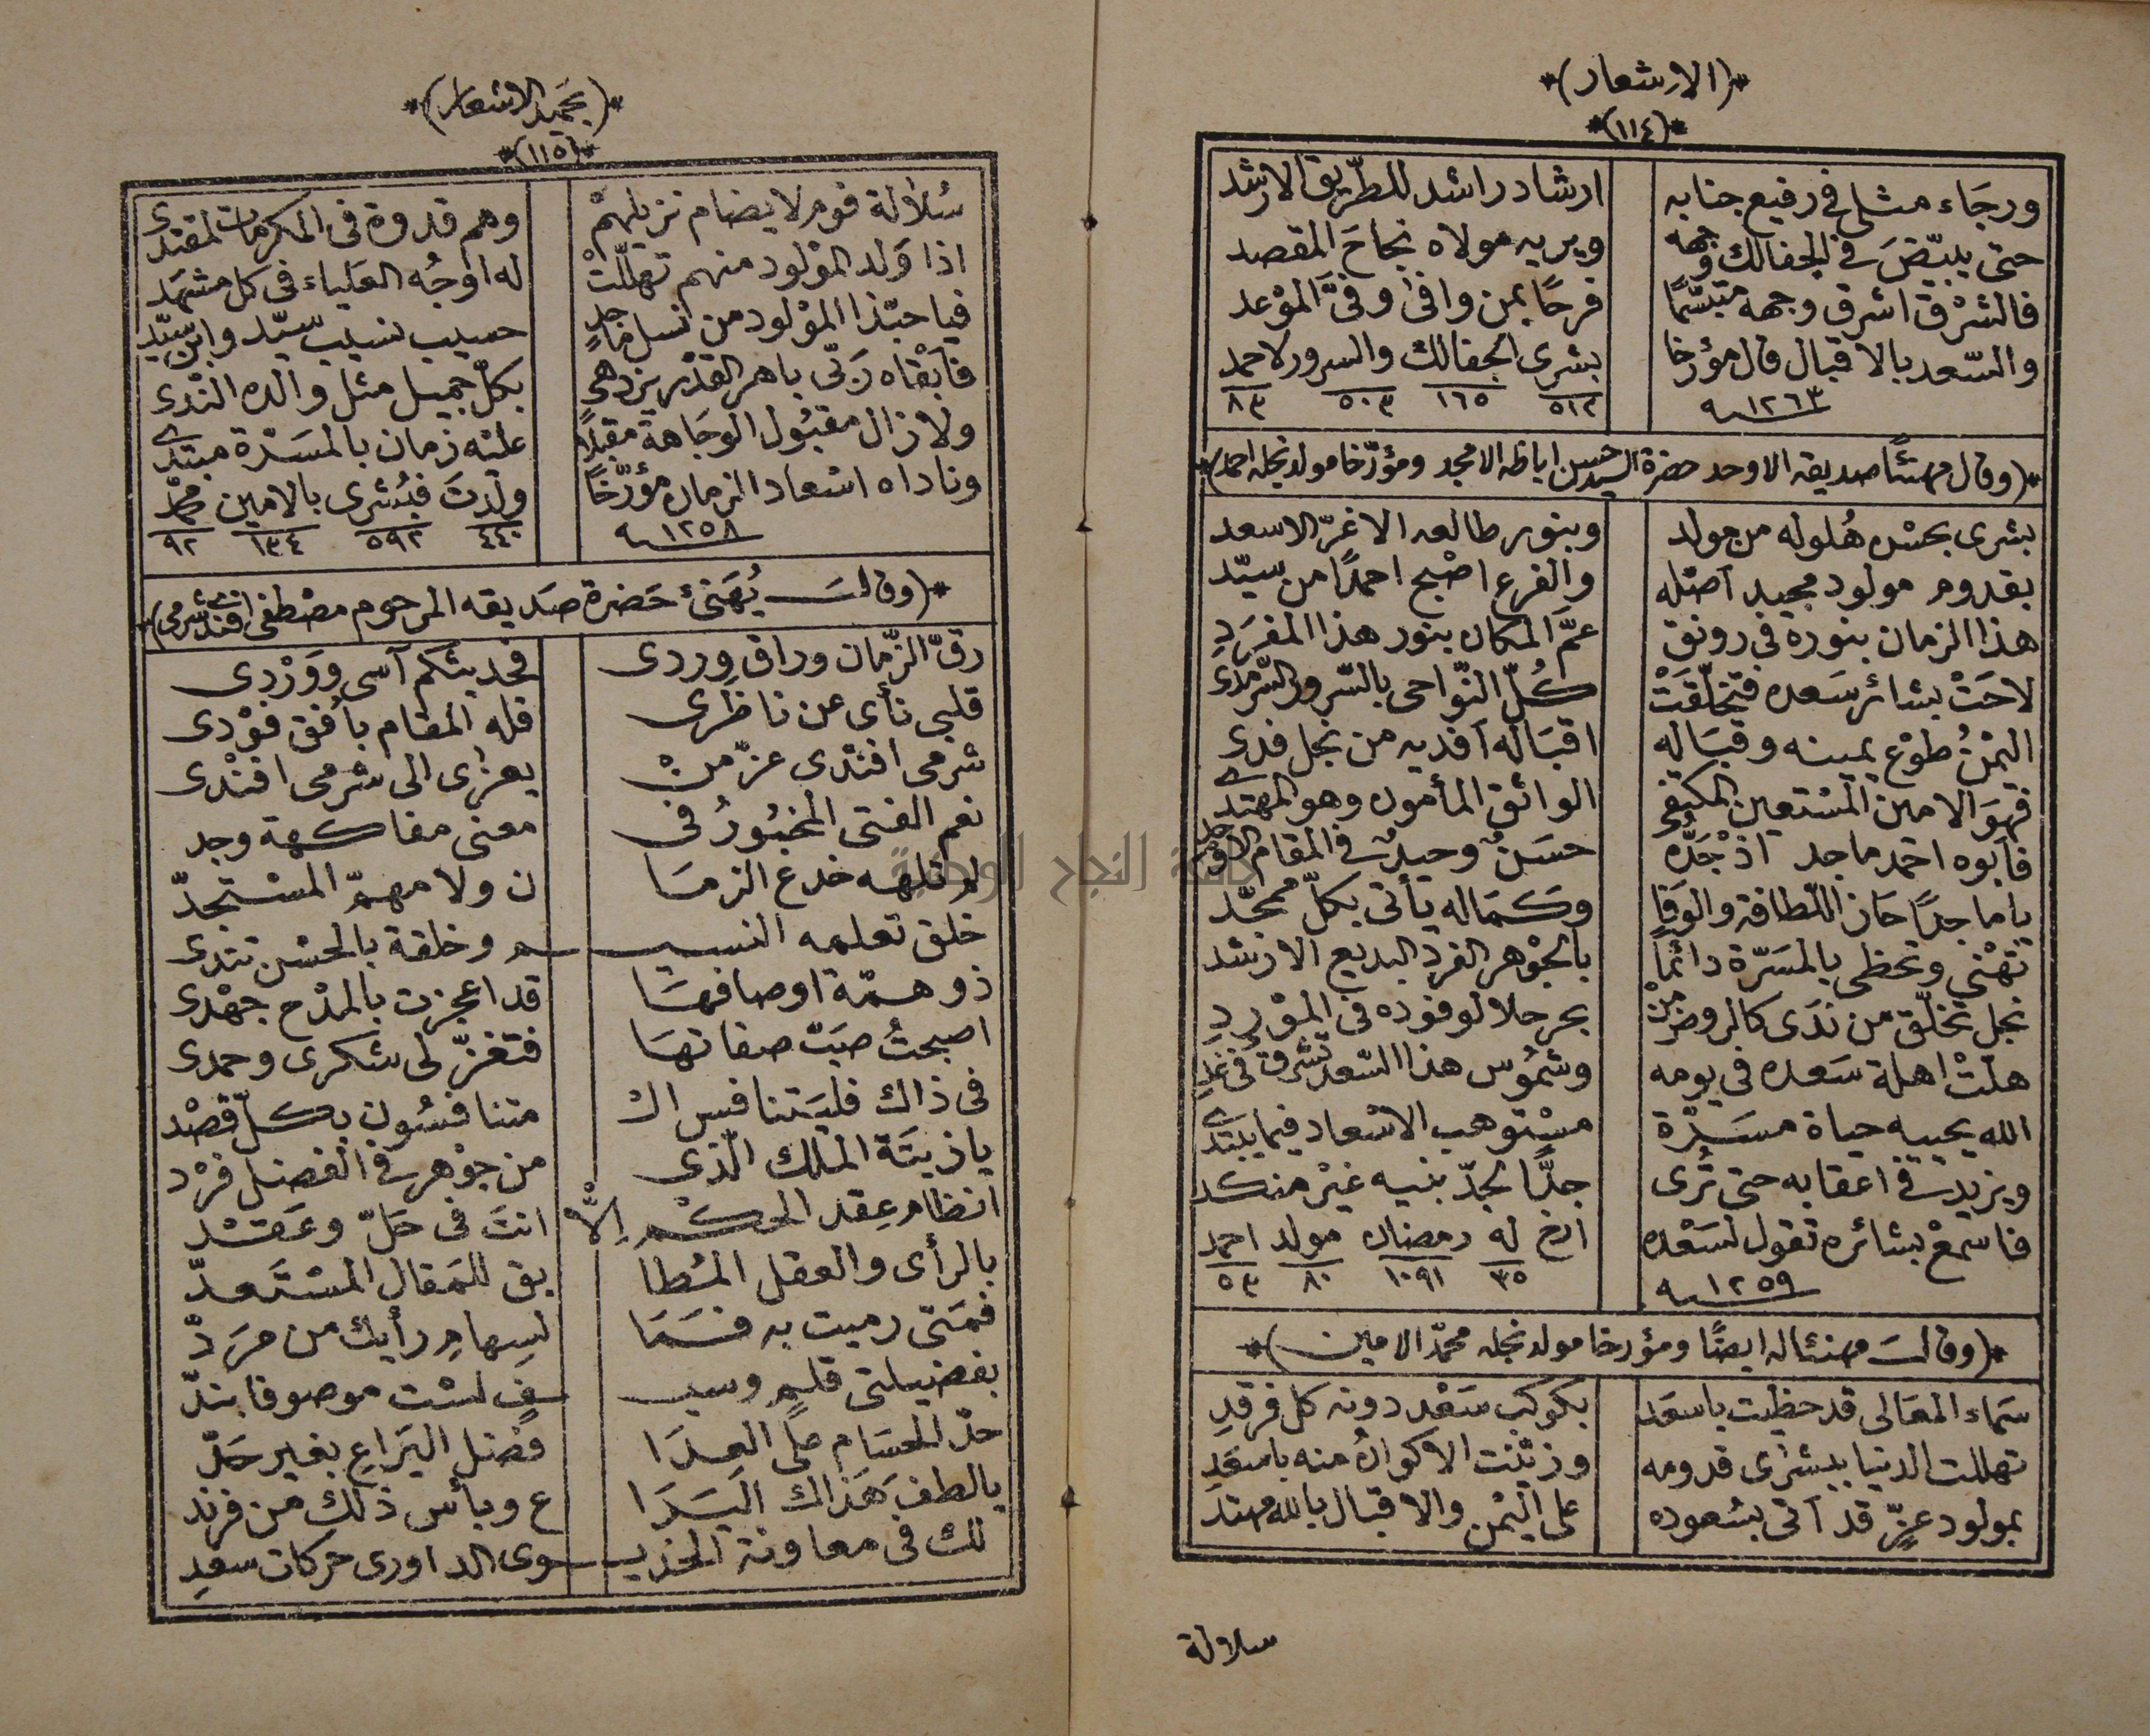 *(الاشعار)*
*(١١٤)*
ورجاء مثلى فى رفيع جنابه ارشاد راشد للطّريق الارشد
حتى يبيّضَ فى الجفالك وجهه ويريه مولاه نجاحَ المقصد
فالشرْق اشرق وجهه متبسّمًا فرحًا بمن وافى وفىَّ الموْعد
والسّعد بالاقبال قال مؤرخا بشرى الجفالك والسرور لاحمد
١٢٦٣ ٥١٢ ١٦٥ ٥٠٣ ٨٣
*(وقال مهنئًا صديقه الاوحد حضرة السيد حسن اباظه الامجد ومؤرّخا مولد نجله احمد)*
بشرى بحسْن هُلوله من مولد وبنور طالعه الاغرّ الاسعد
بقدوم مولود مجيد اصْله والفرع اصْبح احمدًا من سيّد
هذا الزمان بنوره فى رونق عمَّ المكان بنور هذا المفرَدِ
لاحَتْ بشائر سَعده فتخلّقَتْ كُلّ النّواحى بالسّرور السّرمدى
اليمْنُ طوْع يمينه وقبَاله اقبَاله افديه من نجل فدى
فهوَ الامين المسْتعين المكتفى الواثق المأمون وهو المهتدى
فابوه احمد ماجد اذ جَدّه حسَنٌ وحيدٌ فى المقام الاوْحد
يا ماجدًا حَاز اللّطافة والوَفا وكمَاله يأتى بكلّ ممجّد
تهْنى وتحظى بالمسَرّة دائمًا بالجوْهر الفرد البديع الارشد
نجل تخلّق من ندَى كالروض منْ بحر حلا لوفوده فى الموْردِ
هلّتْ اهلة سَعده فى يومه وشمُوس هذا السّعد تشرق فى غدِ
الله يحييه حياة مسَرّة مسْتوهب الاسْعاد فيما يبتدى
ويزيد فى اعقابه حتى تُرى جدًّا لجدّ بنيه غيْر منكد
فاسمعْ بشائره تقول لسَعْده ارخ له رمضان مولد احمد
١٢٥٩ ٣٥ ١٠٩١ ٨٠ ٥٣
*(وقالَ مهنئا له ايضًا ومؤرخا مولد نجله محمّد الامين)*
سَماء المعَالى قد حظيت باسعَد بكوكب سَعْد دونه كل فرقدِ
تهللت الدنيا ببشرَى قدومه وزيّنت الاكوانُ منه باسعَدِ
بمولود عزّ قد اتى بسُعوده على اليُمن والاقبال بالله مهتد
سلالة
*(بحميد الاشعار)*
*(١١٥)*
سُلالة قوم لا يضام نزيلهمْ وهم قدوة فى المكرمات لمقتدى
اذا وُلد الموْلود منهم تهللّتْ له اوجُه العَلياء فى كل مشهَد
فيا حبّذا الموْلود من نسل ماجدٍ حسيب نسيب سيّد وابن سيّد
فابْقاه رَبّى باهر القدْر يزدهى بكلّ جميل مثل والده النّدى
ولا زال مقبُول الوجَاهة مقبلًا عليْه زمان بالمسَرّة مبتدى
وناداه اسعاد الزمان مؤرّخًا ولدتَ فبُشرى بالامين محمّد
١٢٥٨ ٤٤٠ ٥٩٢ ١٣٤ ٩٢
*(وقالَ يُهَنئ حَضرة صَديقه المرحوم مصْطفى افندى شرمى)*
رقّ الزّمان وراق وِردى فحديثكم آسى ووَرْدى
قلبى نأى عن ناظرى فله المقام بأفق فوْدى
شرمى افنْدى عزّ منْ يعزى الى شرْمى افنْدى
نعم الفتى المخبُورُ فى معنى مفاكهة وجد
لم تلهه خدع الزمَا ن ولا مهمّ المسْتجدّ
خلق تعلمه النسيـ ـم وخلقة بالحسْن تندى
ذو همّة اوصافهَا قد اعجزت بالمدْح جهْدى
اصبحتُ صَبّ صفاتهَا فتغزّلى شكرى وحمدى
فى ذاك فليَتنافس الـ متنافسُون بكلّ قصْد
يا زينَة الملك الّذى من جوْهر فى الفضل فرْد
انظام عِقد الحكْم اِلّا انتَ فى حَلّ وعَقْد
بالرأى والعقل المُطا بق للمَقال المسْتَعدّ
فمَتى رميت به فمَا لسِهامِ رأيك من مرَدّ
بفضيلتى قلمٍ وسيـ ـفٍ لسْت موصوفا بندّ
حدّ الحسَام على العدَا فضل اليَراعِ بغير حَدّ
يا لطفَ هَذاك اليَرَا ع وبأس ذلك من فرند
لك فى معاونة الخديـ ـوى الداورى حركات سعدِ